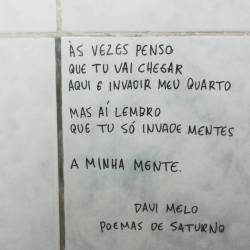 ÀS VEZES PENSO
QUE TU VAI CHEGAR
AQUI E INVADIR MEU QUARTO
MAS AÍ LEMBRO
QUE TU SÓ INVADE MENTES
A MINHA MENTE.
DAVI MELO
POEMAS DE SATURNO